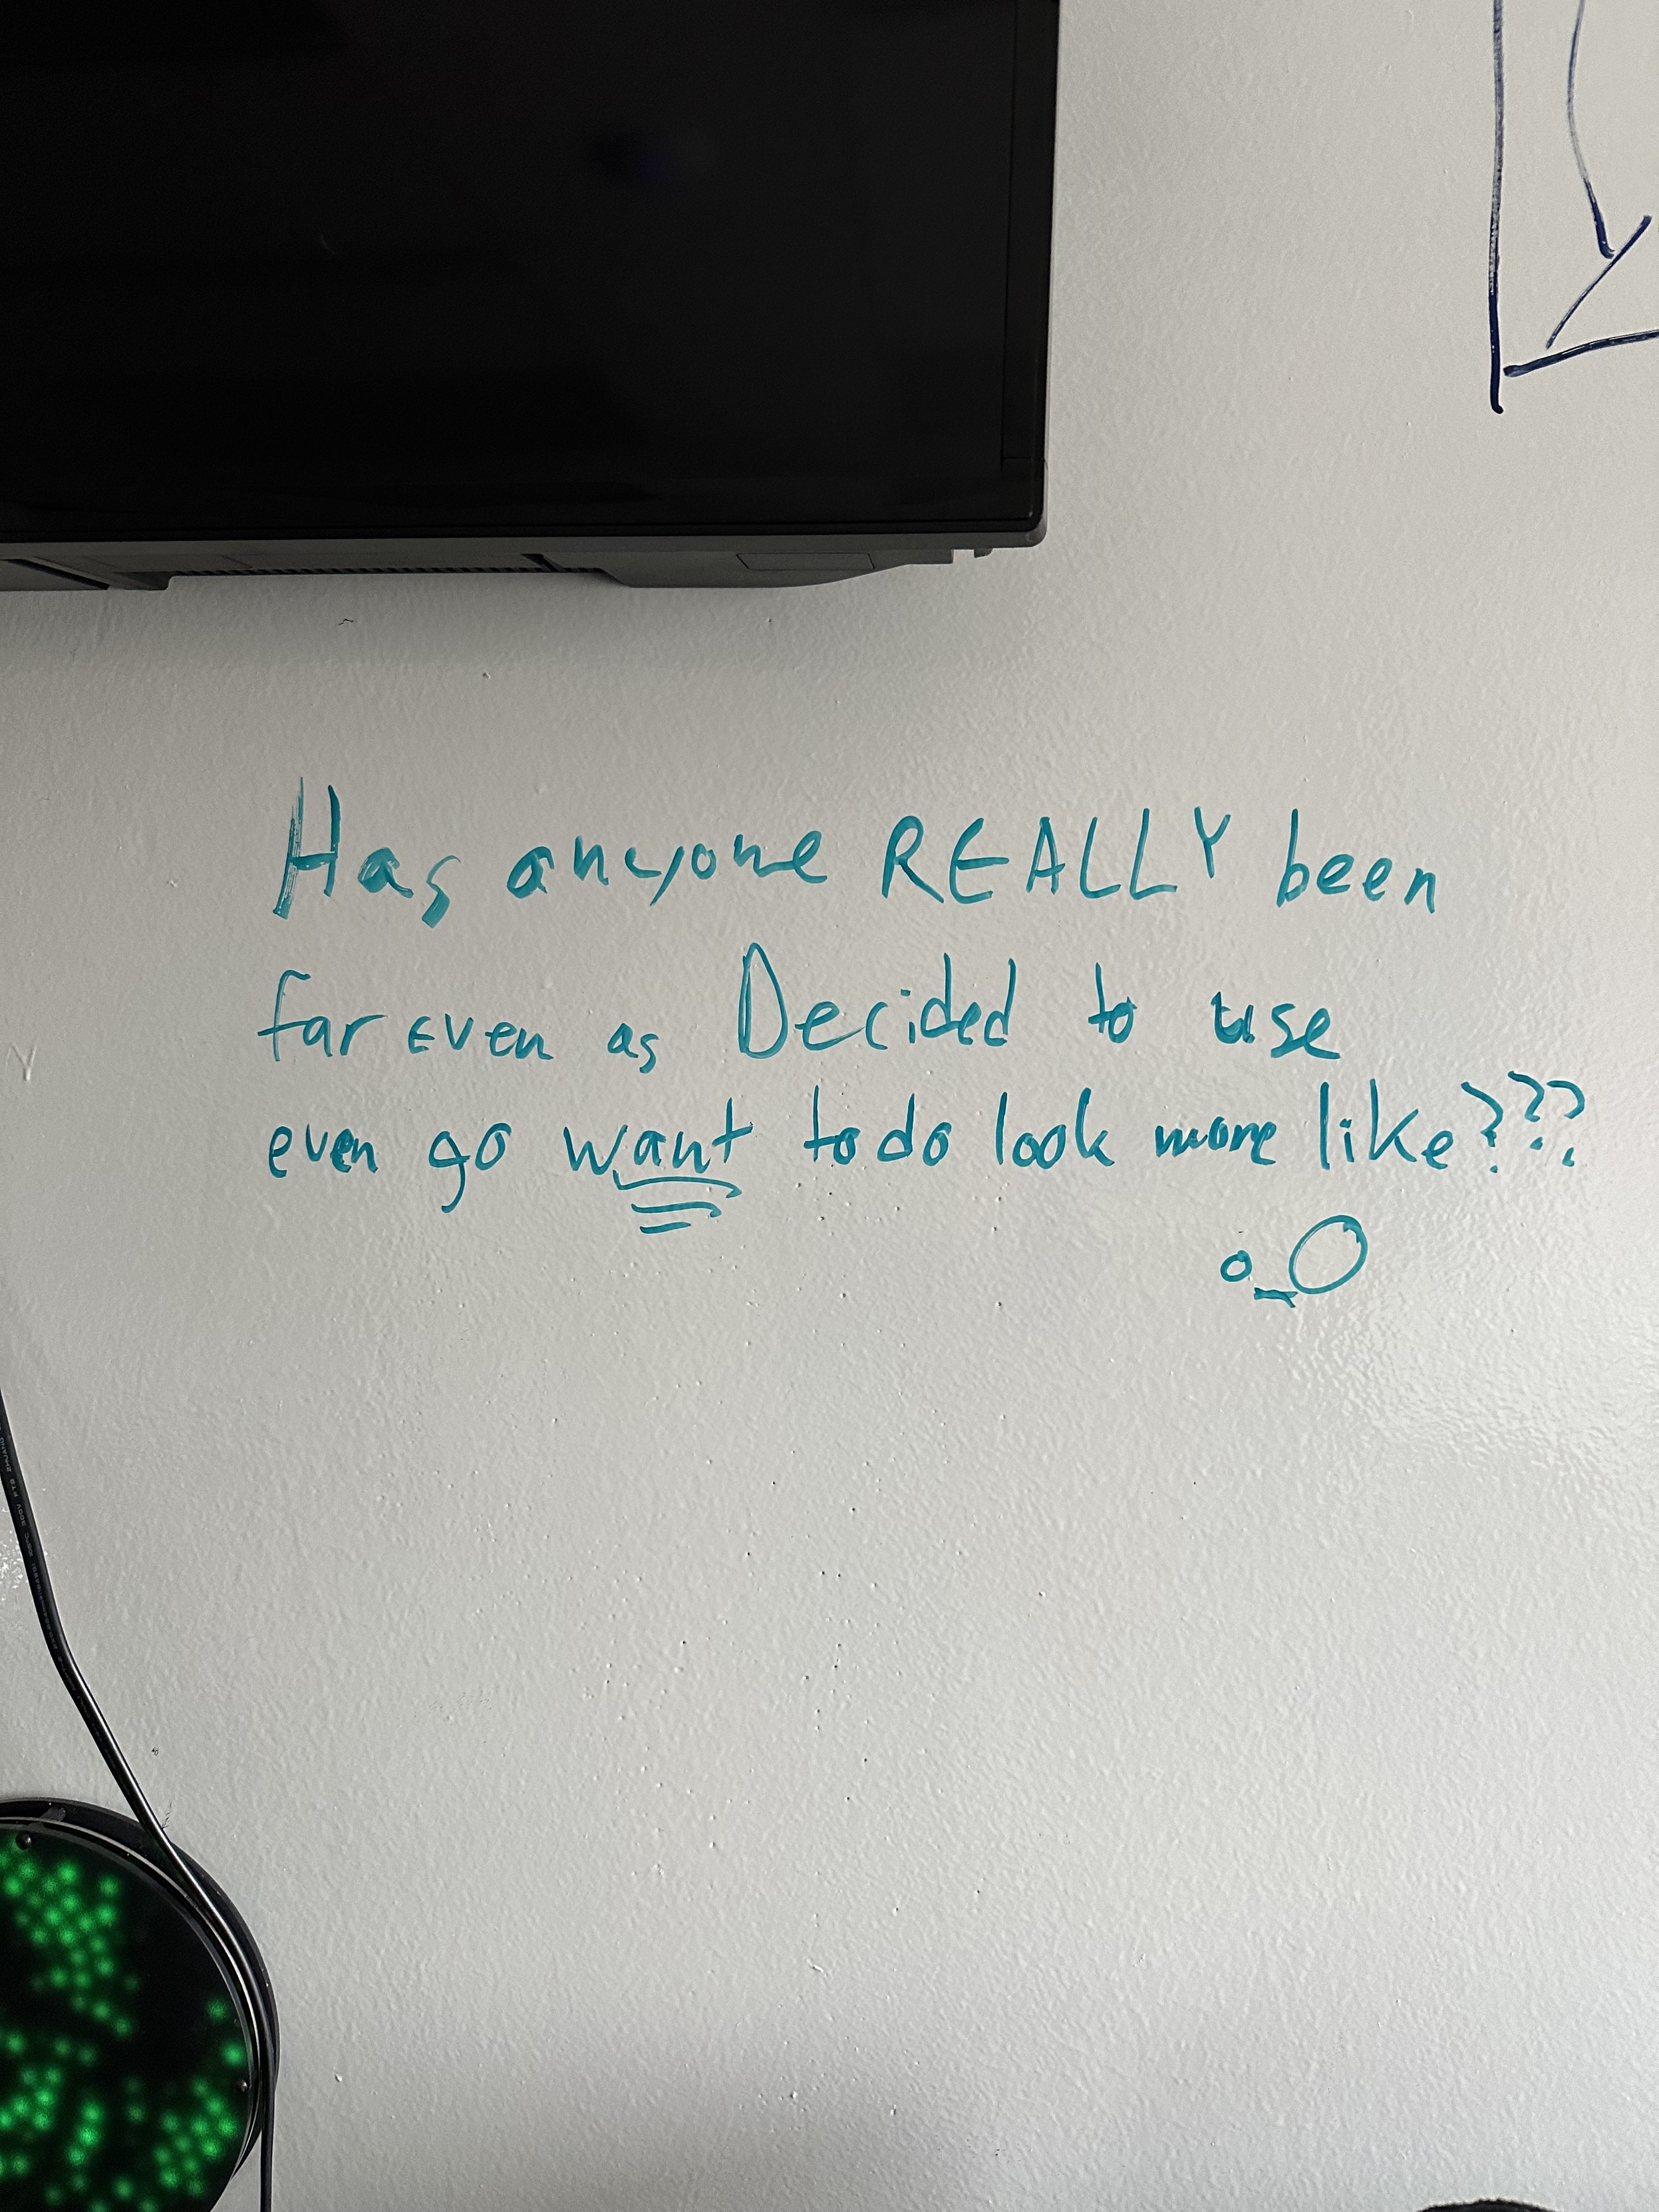 Has anyone REALLY been
far even as Decided to use
even go want to do look more like???
o_O